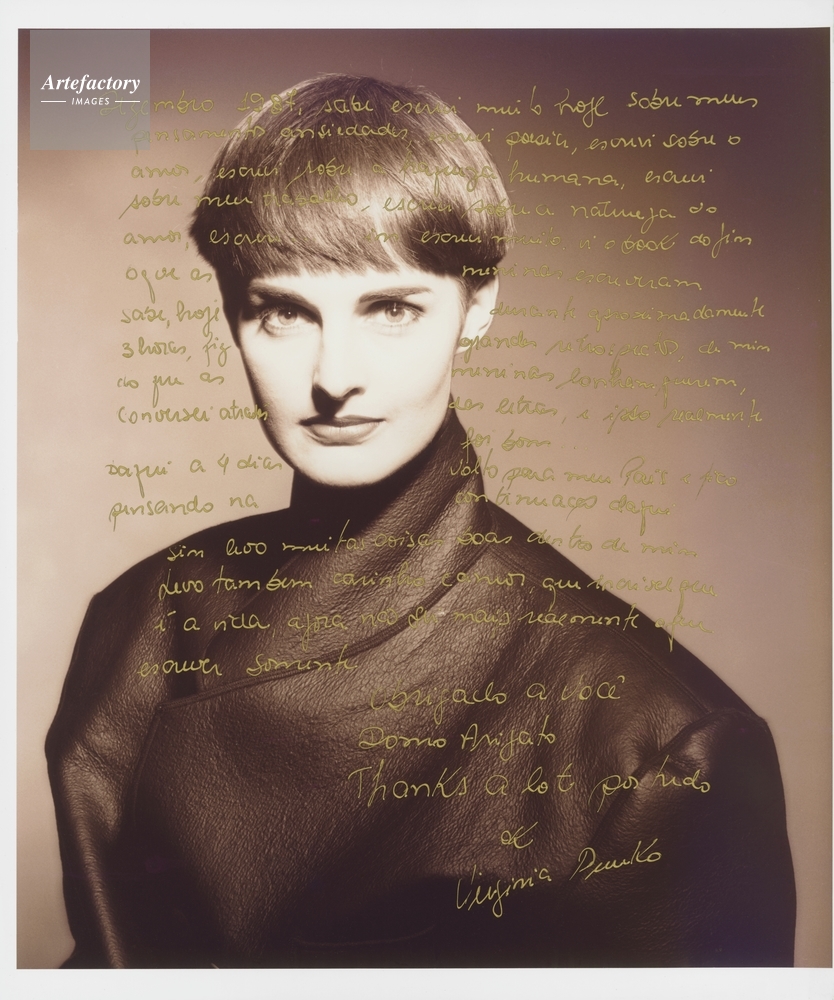 Artefactory
IMAGES
1987, sabe escrevi muito hoje sobre meus
pensamento ansiedades, escrevi poesia, escrevi sobre o
amor, escrevi sobre a humana, escrevi
sobre meu trabalho, escrevi sobre a natureza do
amor, escrevi sim escrevi muito, vi o book do fim
o que as meninas escreveram
sabe, hoje durante aproximadamente
3 horas, fiz grandes de mim
do que as meninas
conversei através das letras, e isso realmente
foi bom
Daqui a 4 dias volto para meu País e fico
pensando na continuação daqui
sim levo muitas coisas boas dentro de mim
Levo também carinho e amor, que
é a vida agora não sei mais realmente
escrever somente
obrigado a você
Domo Arigato
Thanks a lot por tudo
Virginia Punko